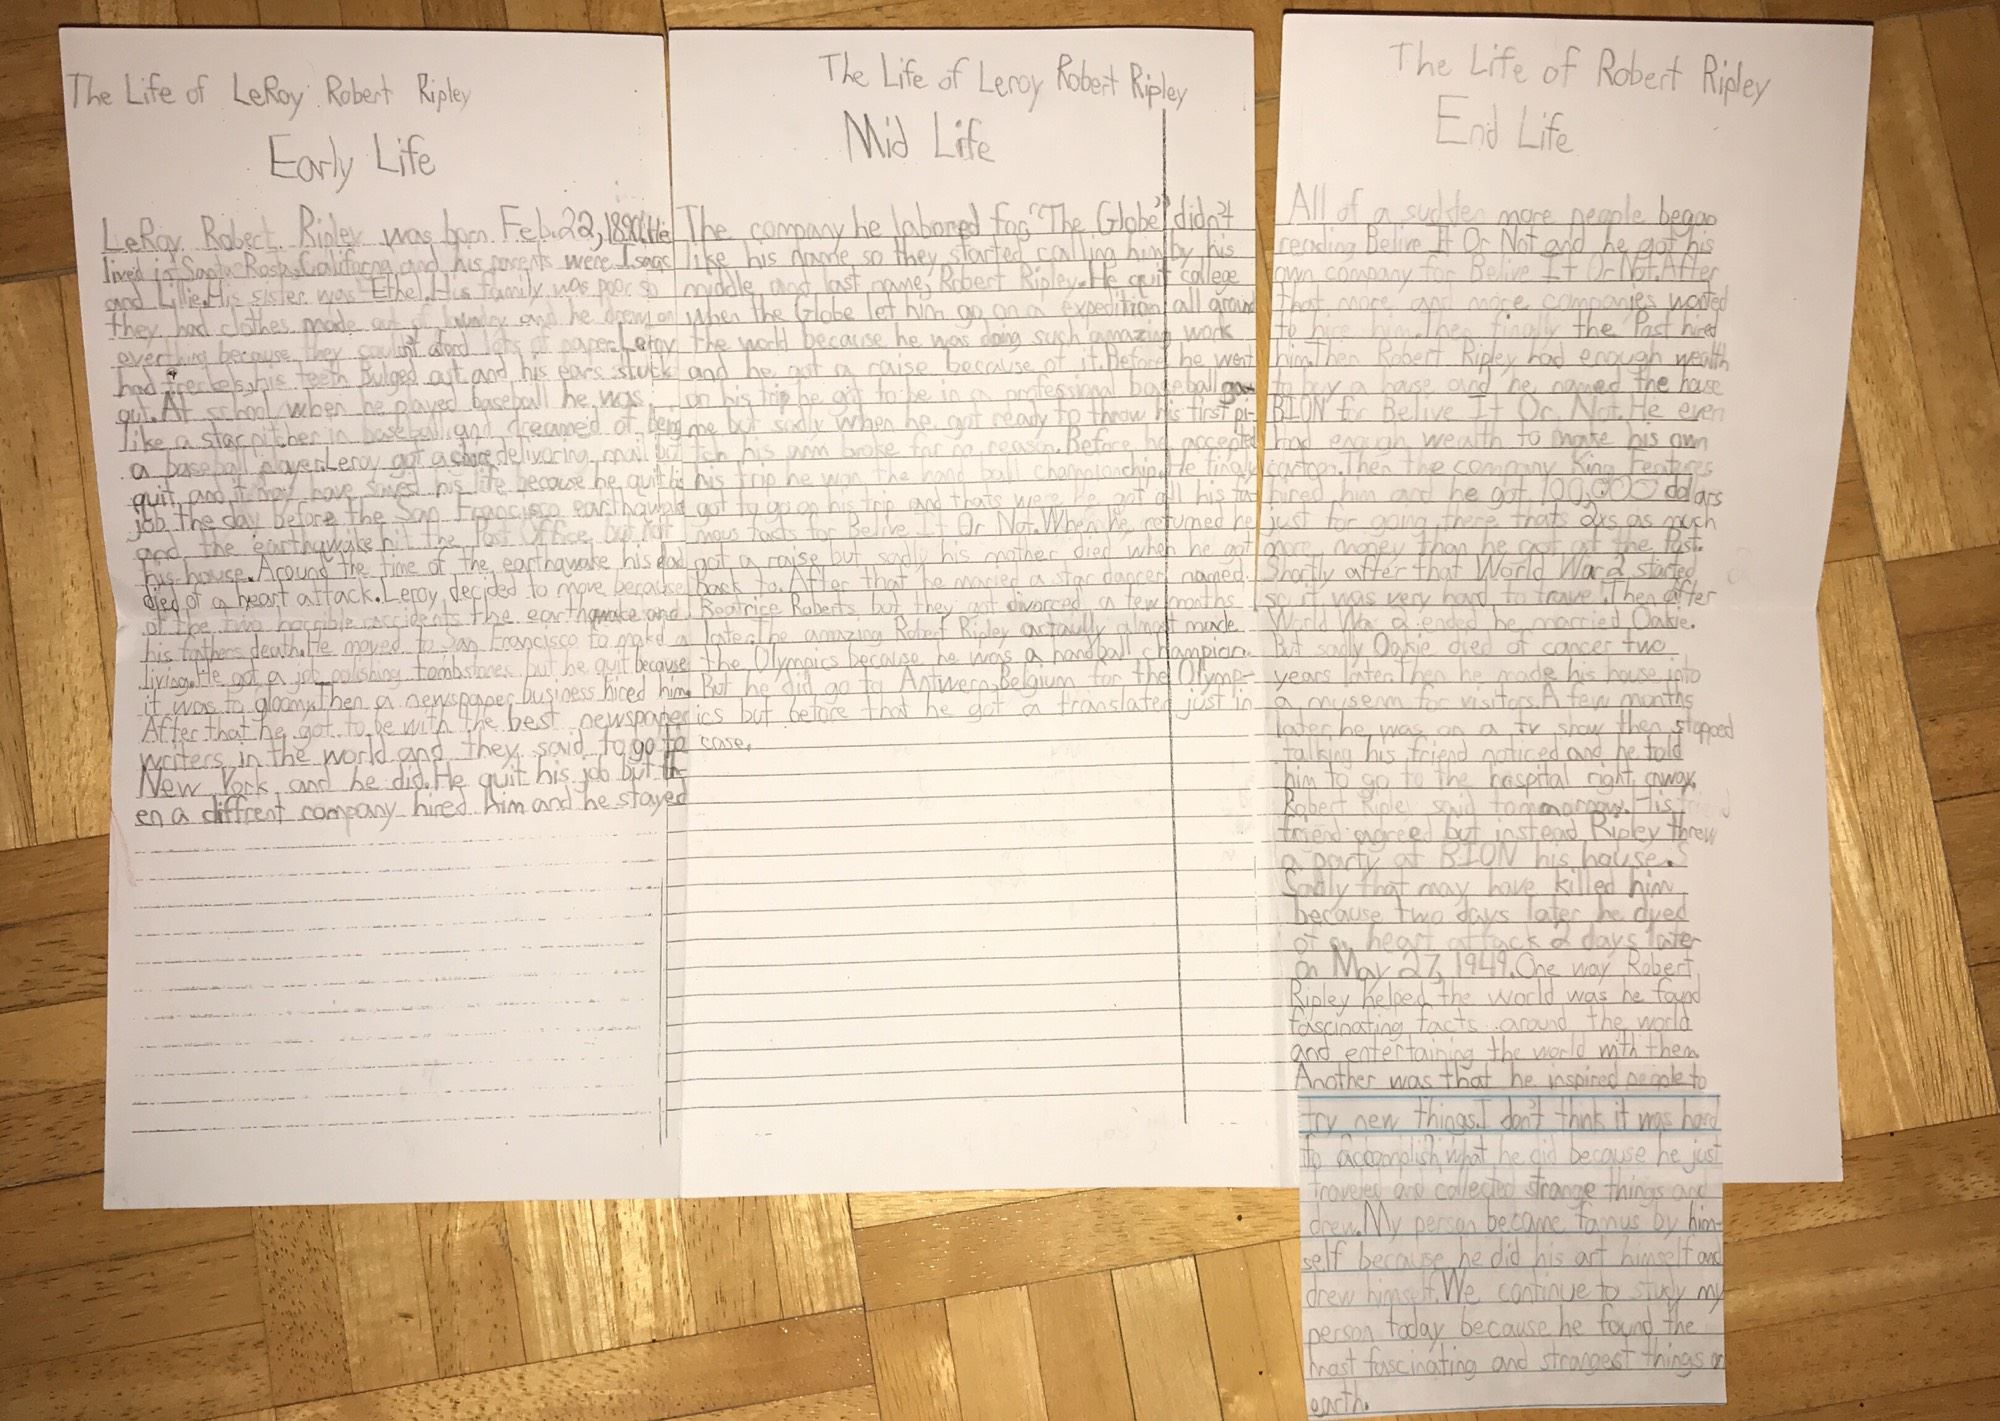 The Life of LeRoy Robert Ripley
Early Life
LeRoy Robert Ripley was born Feb. 22, 1890. He
lived in Santa Rosa, Californa and his parents were Isaac
and Lillie. His sister was Ethel. His family was poor so
they had clothes made out of laundry and he drew on
everthing because they couldn't aford lots of paper. Leroy
had freckels, his teeth bulged out and his ears stuck
out. At school when he played baseball he was
like a star pitcher in baseball and dreamed of being
a baseball player. Leroy got a delivoring mail but
quit and it may have saved his life because he quit his
job the day before the San Francisco earthquake
and the earthquake hit the Post Office, but not
his house. Around the time of the earthquake his dad
died of a heart attack. Leroy decided to move because
of the two horrible accidents the earthquake and
his fathers death. He moved to San Francisco to make a
living. He got a job polishing tombstones but he quit because
it was to gloomy. Then a newspaper business hired him.
After that he got to be with the best newspaper
writers in the world and they said to go to
New York and he did. He quit his job but th-
en a diffrent company hired him and he stayed
The Life of Leroy Robert Ripley
Mid Life
The company he labored for, "The Globe" didn't
like his name so they started calling him by his
middle and last name, Robert Ripley. He quit college
when the Globe let him go on a expedition all around
the world because he was doing such amazing work
and he got a raise because of it. Before he went
on his trip he got to be in a professional baseball ga-
me but sadly when he got ready to throw his first pi-
tch his arm broke for no reason. Before he accepted
his trip he won the hand ball championchip. He finaly
got to go on his trip and thats were he got all his fa-
mous facts for Belive It Or Not. When he returned he
got a raise but sadly his mother died when he got
back to. After that he maried a star dancer named
Beatrice Roberts but they got divorced a few months
later. The amazing Robert Ripley actaully almost made
the Olympics because he was a handball champion.
But he did go to Antwern, Belgium for the Olymp-
ics but before that he got a translater just in
case.
The Life of Robert Ripley
End Life
All of a sudden more people began
reading Belive It Or Not and he got his
own company for Belive It Or Not. After
that more and more companies wanted
to hire him. Then finally the Post hired
him. Then Robert Ripley had enough wealth
to buy a house and he named the house
BION for Belive It Or Not. He even
had enough wealth to make his own
cartoon. Then the company King Features
hired him and he got 100,000 dolars
just for going there thats 2xs as much
more money than he got at the Post.
Shortly after that World War 2 started
so it was very hard to travel. Then after
World War 2 ended he married Oakie.
But sadly Oakie died of cancer two
years later. Then he made his house into
a musenm for visitors. A few months
later he was on a TV show then stopped
talking his friend noticed and he told
him to go to the hospital right away.
Robert Riple said tomorrow. His
friend agreed but instead Ripley threw
a party at BION his house.
Sadly that may have killed him
because two days later he dyed
of a heart attack 2 days later
on May 27, 1949. One way Robert
Ripley helped the world was he found
fascinating facts around the world
and entertaining the world with them.
Another was that he inspired people to
try new things. I don't think it was hard
to accomplish what he did because he just
traveled and collected strange things and
drew. My person became famus by him-
self because he did his art himself and
drew himself. We continue to study my
person today because he found the
most fascinating and strangest things on
earth.